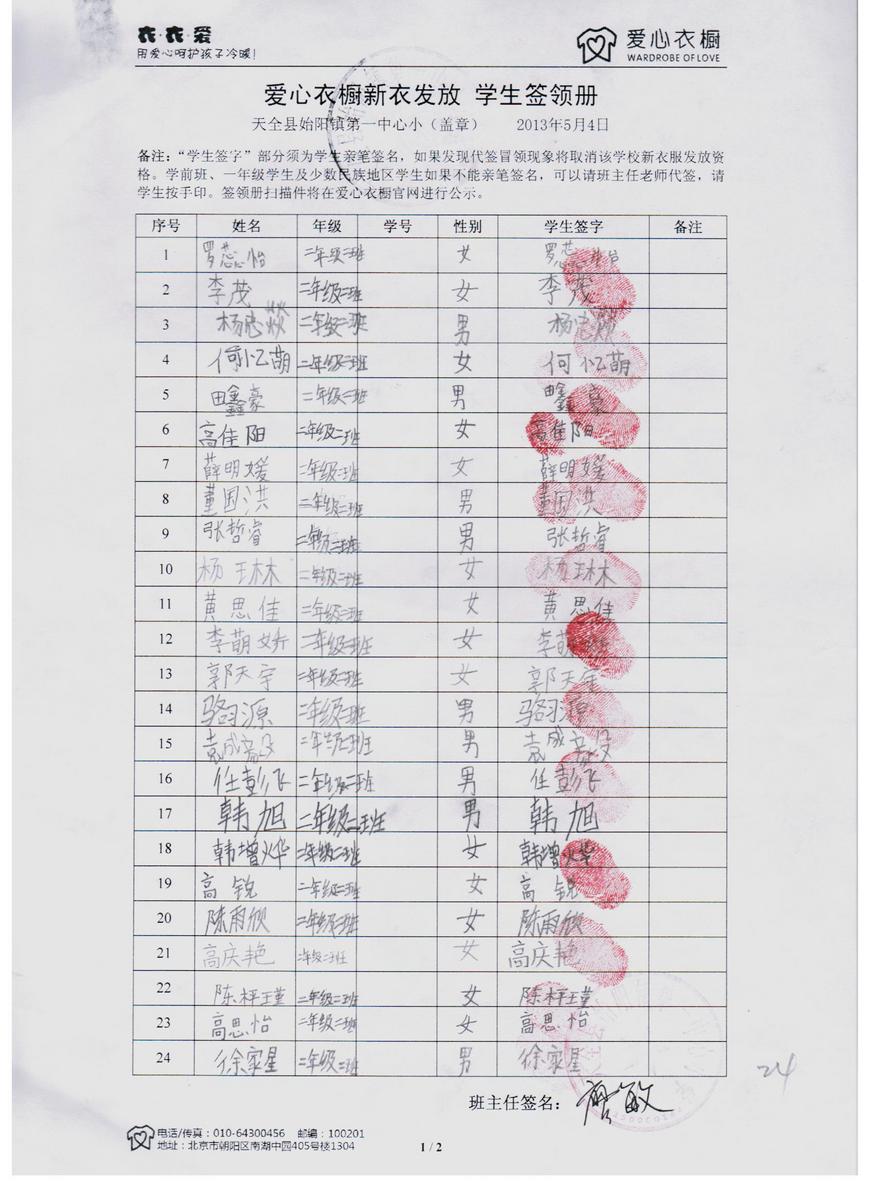 衣·衣·爱
用爱心呵护孩子冷暖!
爱心衣橱
WARDROBE OF LOVE
爱心衣橱新衣发放 学生签领册
天全县始阳镇第一中心小（盖章） 2013年5月4日
备注：“学生签字”部分须为学生亲笔签名，如果发现代签冒领现象将取消该学校新衣服发放资
格。学前班、一年级学生及少数民族地区学生如果不能亲笔签名，可以请班主任老师代签，请
学生按手印。签领册扫描件将在爱心衣橱官网进行公示。
序号 姓名 年级 学号 性别 学生签字 备注
1 罗蕊怡 二年级二班 女 罗蕊怡
2 李茂 二年级二班 女 李茂
3 杨忠焱 二年级二班 男 杨忠焱
4 何忆萌 二年级二班 女 何忆萌
5 田鑫豪 二年级二班 男 田鑫豪
6 高佳阳 二年级二班 女 高佳阳
7 薛明媛 二年级二班 女 薛明媛
8 董国洪 二年级二班 男 董国洪
9 张哲睿 二年级二班 男 张哲睿
10 杨琳 二年级二班 女 杨琳
11 黄思佳 二年级二班 女 黄思佳
12 李萌娇 二年级二班 女 李萌娇
13 郭天宇 二年级二班 女 郭天宇
14 骆羽源 二年级二班 男 骆羽源
15 袁成 二年级二班 男 袁成
16 任彭飞 二年级二班 男 任彭飞
17 韩旭 二年级二班 男 韩旭
18 韩增烨 二年级二班 女 韩增烨
19 高锐 二年级二班 女 高锐
20 陈雨欣 二年级二班 女 陈雨欣
21 高庆艳 二年级二班 女 高庆艳
22 陈枰瑾 二年级二班 女 陈枰瑾
23 高思怡 二年级二班 女 高思怡
24 徐家星 二年级二班 男 徐家星
24
班主任签名： 敏
电话/传真：010-64300456 邮编：100201
地址：北京市朝阳区南湖中园405号楼1304
1 / 2